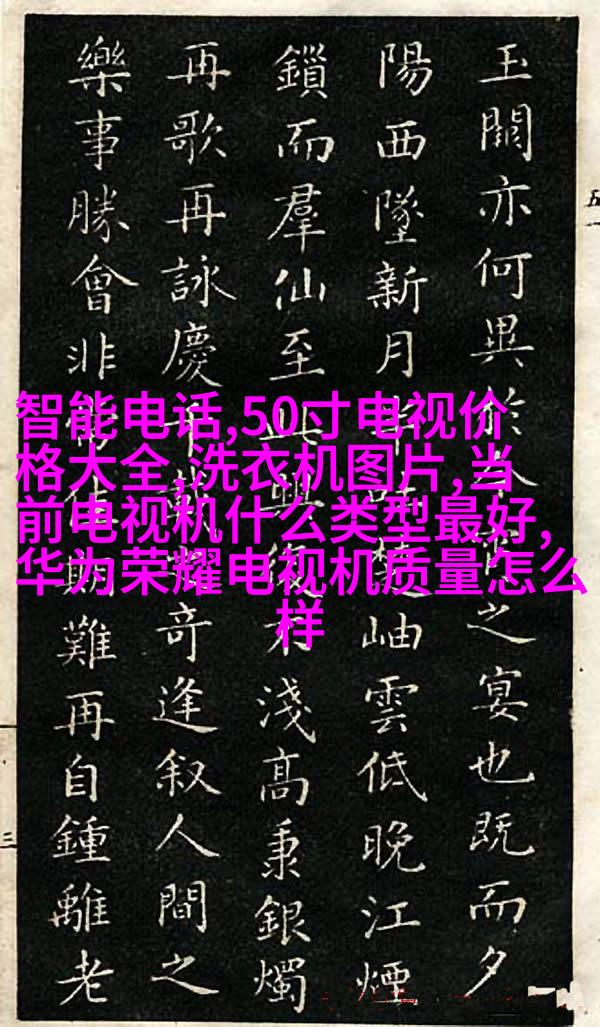 玉闕亦何異於之宴也既而夕
陽西墜新月半楚岫雲低晚江煙
鎖而羣仙至興復淺高秉銀燭
再歌再詠慶千載奇逢叙人間之
樂事勝會非佳期難再自鍾離老
智能电话,50寸电视价
格大全,洗衣机图片,当
前电视机什么类型最好,
华为荣耀电视机质量怎么
样